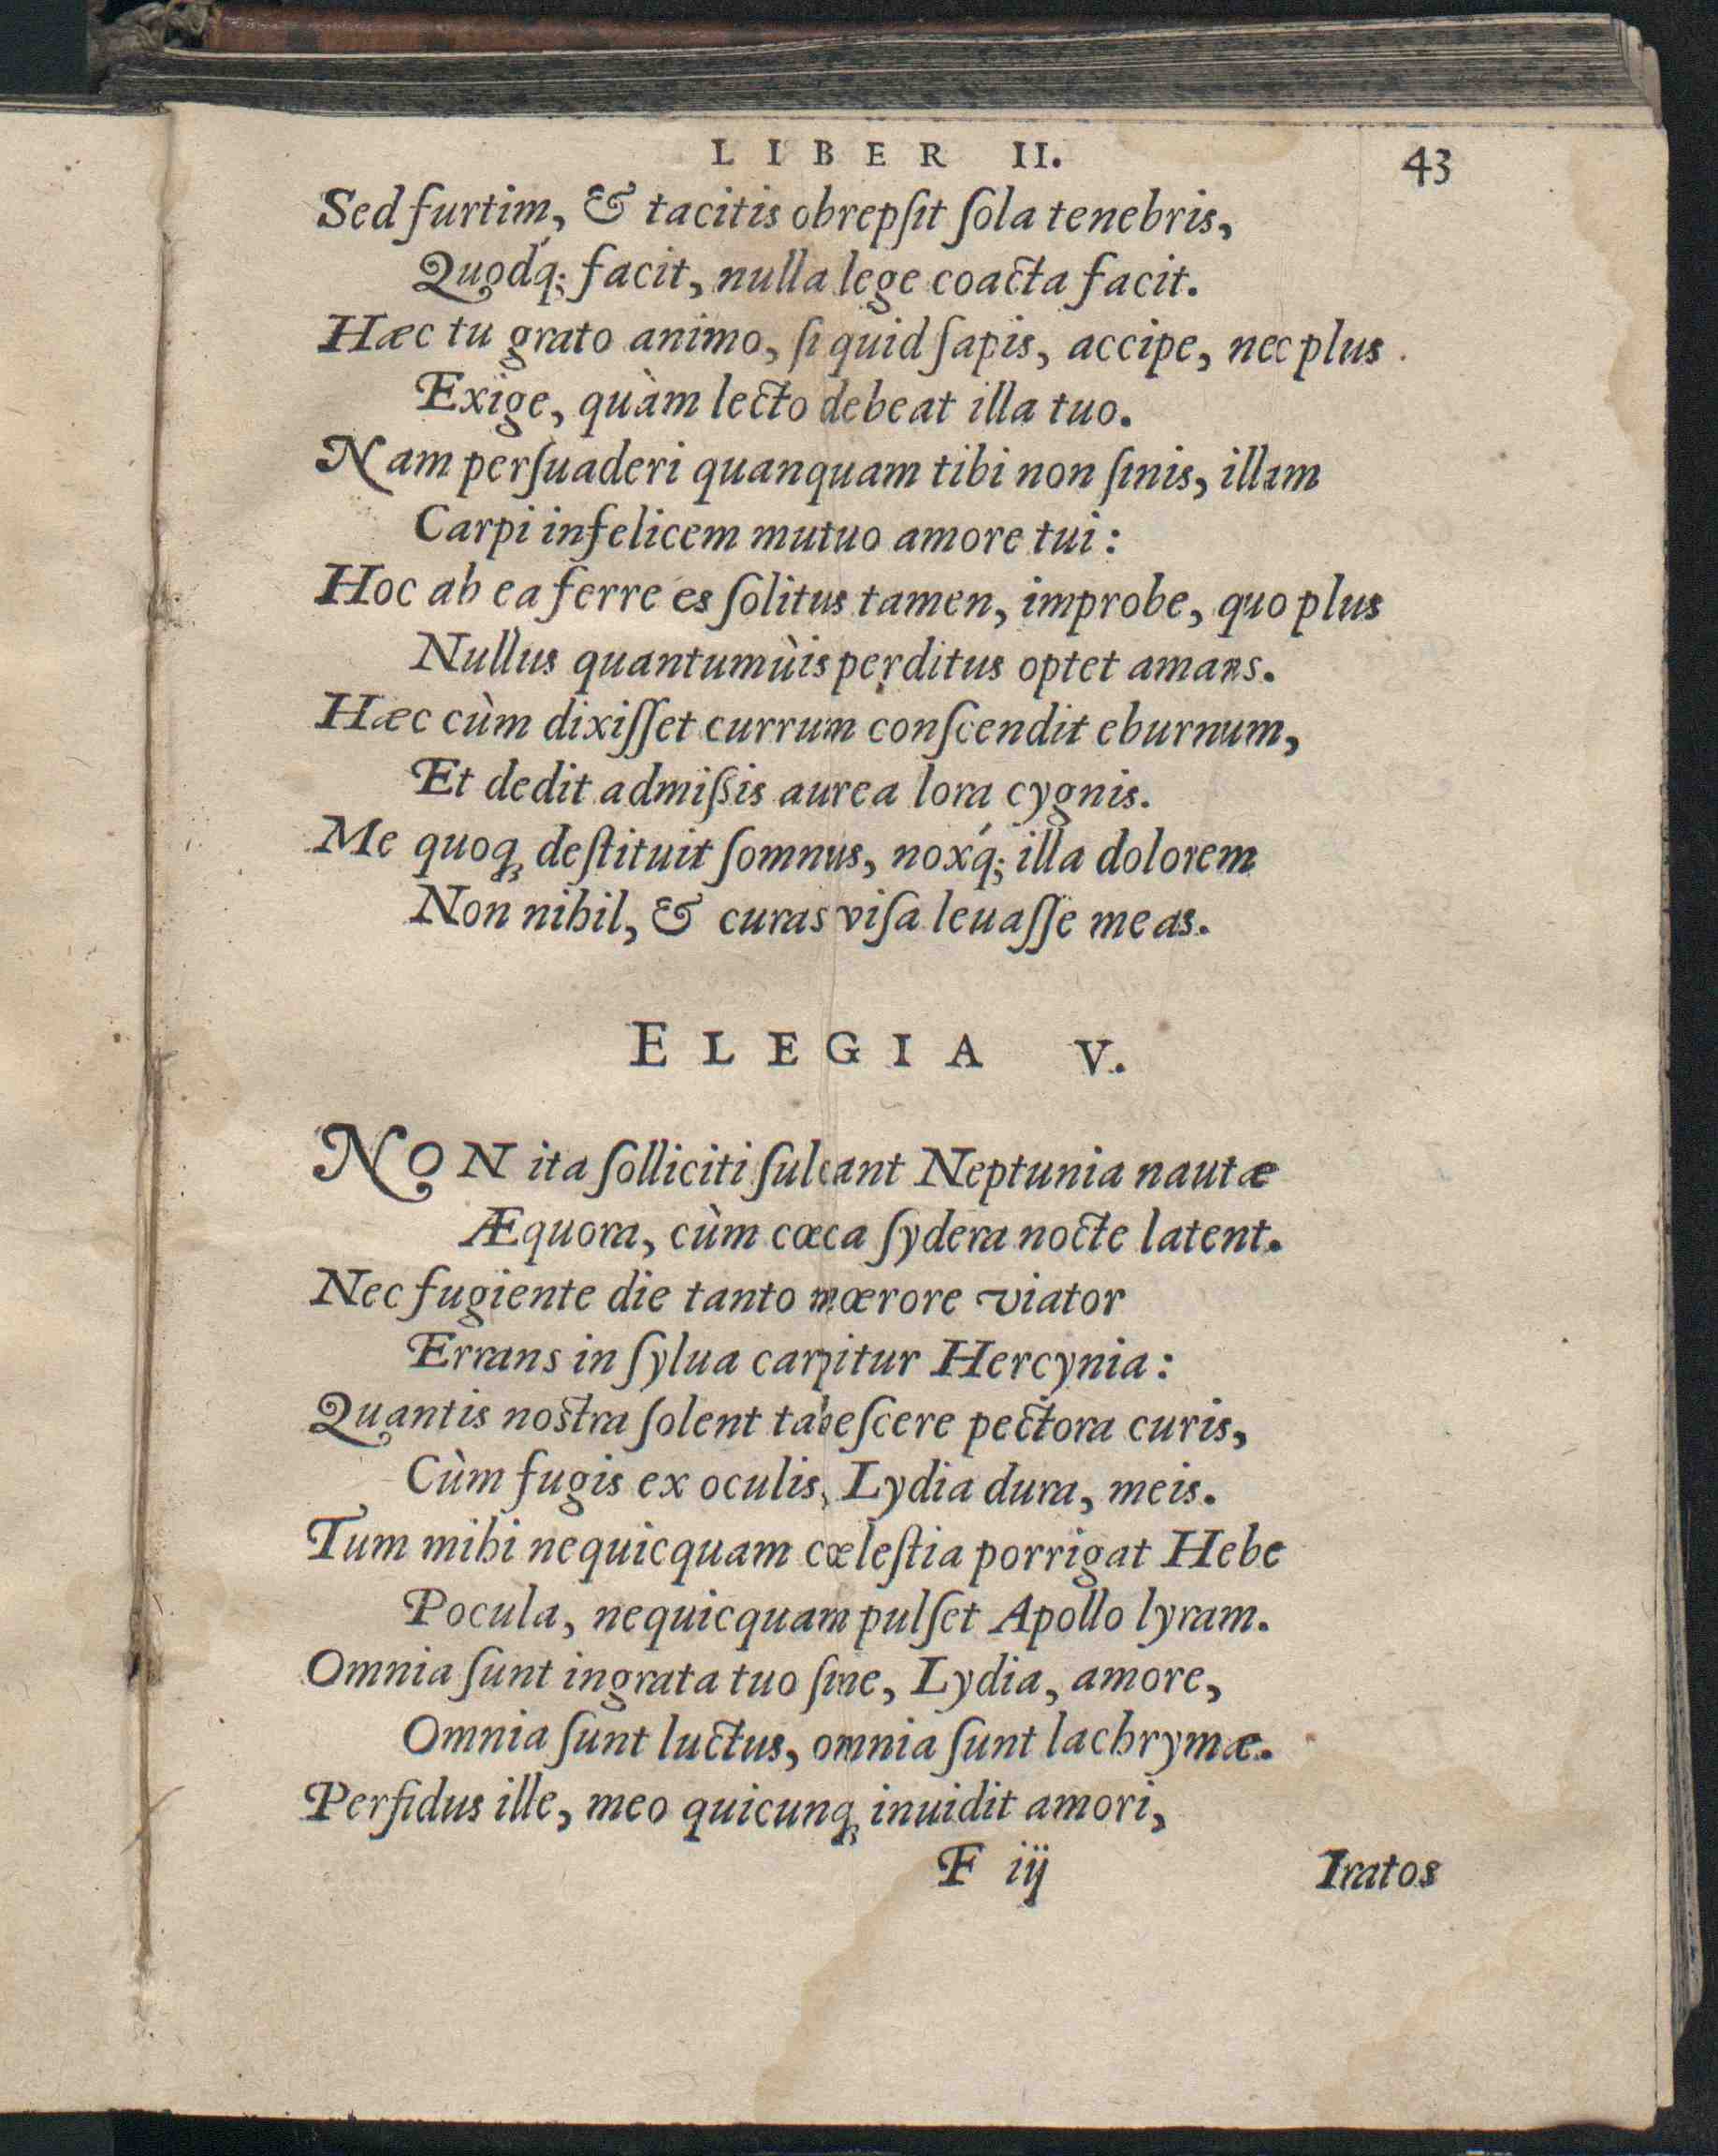 LIBER II. 43
Sed furtim, & tacitis obrepſit ſola tenebris,
Quodq́; facit, nulla lege coacta facit.
Hæc tu grato animo, ſi quid ſapis, accipe, nec plus
Exige, quàm lecto debeat illa tuo.
Nam perſuaderi quanquam tibi non ſinis, illam
Carpi infelicem mutuo amore tui:
Hoc ab ea ferre es ſolitus tamen, improbe, quo plus
Nullus quantumùis perditus optet amans.
Hæc cùm dixiſſet currum conſcendit eburnum,
Et dedit admiſsis aurea lora cygnis.
Me quoq; deſtituit ſomnus, noxq́; illa dolorem
Non nihil, & curas viſa leuaſſe meas.
ELEGIA V.
NON ita ſolliciti ſulcant Neptunia nautæ
Æquora, cùm cœca ſydera nocte latent.
Nec fugiente die tanto mœrore viator
Errans in ſylua carpitur Hercynia:
Quantis nostra ſolent tabeſcere pectora curis,
Cùm fugis ex oculis, Lydia dura, meis.
Tum mihi nequicquam cœleſtia porrigat Hebe
Pocula, nequicquam pulſet Apollo lyram.
Omnia ſunt ingrata tuo ſine, Lydia, amore,
Omnia ſunt luctus, omnia ſunt lachrymæ.
Perfidus ille, meo quicunq; inuidit amori,
F iij Iratos